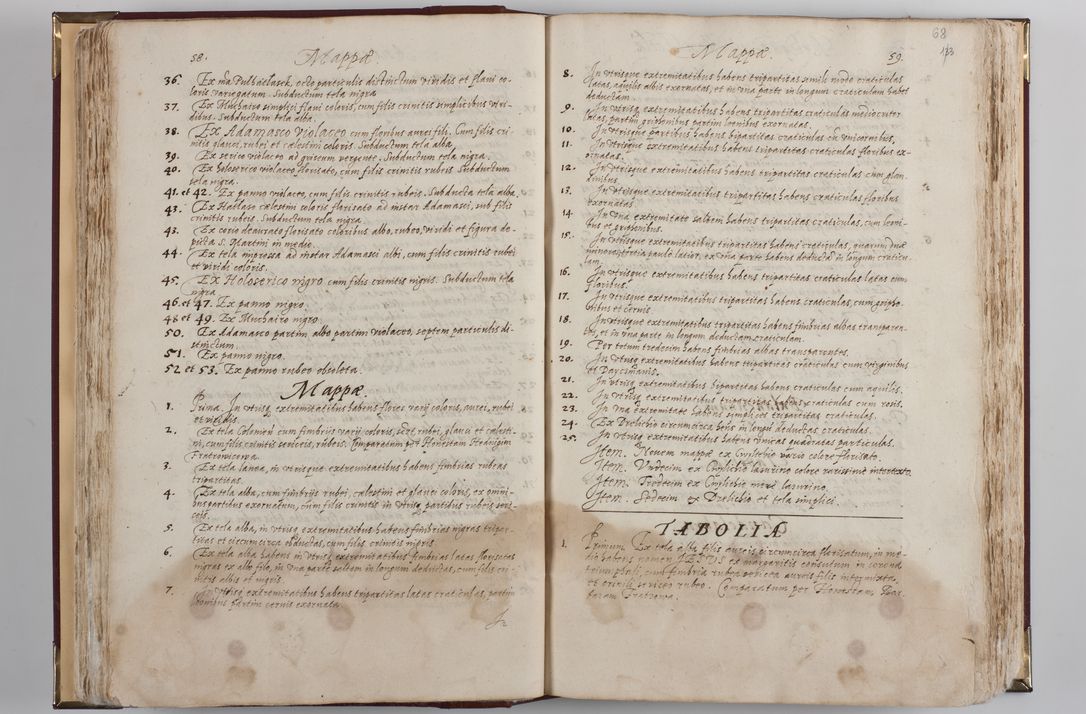 58.
Mappæ
36. Ex Pulhaelasek, octo particulis distinctum viridis et flavi co-
loris variegatum. Subductum tela nigra
37. Ex Muchairo simplici flavi coloris, cum filis crinitis simplicibus viri-
dibus. Subductum tela alba.
38. Ex Adamasco Violaceo cum floribus aurei fili. Cum filis cri-
nitis glauci, rubei et cælestini coloris. Subductum tela alba
39. Ex serico violaceo ad griseum vergente. Subductum tela nigra.
40. Ex holoserico violaceo florisato, cum filis crinitis rubeis Subductum
tela nigra.
41. et 42. Ex panno violaceo, cum filis crinitis rubeis. Subducta tela alba.
43. Ex Hatlase cælestini coloris florisato ad instar Adamasci, sub filis
crinitis rubeis. Subductum tela nigra
43. Ex corio deaurato florisato coloribus albo, rubeo, viridi et figura de-
picta S. Martini in medio.
44. Ex tela impressa ad instar Adamasci albi, cum filis crinitis rubei
et viridi coloris.
45. Ex Holoserico nigro cum filis crinitis nigris. Subductum tela
nigra
46. et 47. Ex panno nigro.
48 et 49. Ex Muchairo nigro
50. Ex Adamasco partim albo partim violaceo, septem particulis di-
stinctum.
51. Ex panno nigro.
52 et 53. Ex panno rubeo obsoleta.
Mappæ.
1. Prima. In utrisq extremitatibus habens flores varij coloris, aurei, rubei
et viridis.
2. Ex tela Coloniẽn cum fimbrijs varij coloris, scilt rubei, glauci et cælesti-
ni, cum filis crinitis sericeis, rubeis. Comparatum per Honestam
3. Ex tela lanea, in utrisque extremitatibus habens fimbrias rubeas
tripartitas.
4. Ex tela alba, cum fimbrijs rubei, cælestini et glauci coloris, ex omni-
bus partibus exornatum, cum filis crinitis in utrisq partibus rubeis seri-
ceis.
5. Ex tela alba, in utrisq extremitatibus habens fimbrias nigras tripar-
titas et circumcirca obductas, cum filis crinitis nigris.
6. Ex tela alba habens in utrisq extremitatibus fimbrias latas florisatas
nigras ex albo filo, in una parte saltem in longum deductas, cum filis cri-
nitis albis et nigris.
7. In utrisq extremitatibus habens tripartitas latas craticulas, partim
leonibus partim cervis exornata.
In
68
113
Mappæ
59.
8. In utrisque extremitatibus habens tripartitas simili modo craticulas
latas, aquilis albis exornatas, et in una parte in longum craticulam habet
deductam.
9. In utrisq extremitatibus habens tripartitas craticulas mediocriter
latas, partim griphonibus partim leonibus exornatas.
10. In utrisque partibus habens bipartitas craticulas cũ unicornibus.
11. In utrisque extremitatibus habens tripartitas craticulas floribus ex-
ornatas.
12. In utrisque extremitatibus habens tripartitas craticulas cum glan-
dinibus.
13. In utrisque extremitatibus habens tripartitas craticulas floribus
exornatas
14. In una extremitate saltem habens tripartitas craticulas, cum leoni-
bus et griphonibus.
15. In utrisque extremitatibus tripartitas habens craticulas, quarum una
paulo latior, ex una parte habens deductã in longum craticu-
lam.
16. In utrisque extremitatibus habens tripartitas craticulas latas cum
floribus.
17. In utrisque extremitatibus habens tripartitas craticulas, cum gripho-
nibus et cervis.
18. In utrisque extremitatibus tripartitas habens fimbrias albas transparen-
tes, et in una parte in longum deductam craticulam.
19. Per totum tredecim habens fimbrias albas transparentes.
20. In utrisq extremitatibus habens tripartitas craticulas cum virginibus
et
21. In utrisq extremitatibus bipartitas habens craticulas cum aquilis.
22. In utrisq extremitatibus tripartitas habens craticulas cum rosis.
23. In una extremitate habens simplices tripartitas craticulas.
24. Ex Drelichio circumcirca bonis in longũ deductas craticulas.
25. In utrisq extremitatibus habens unicas quadratas particulas.
Item. Novem mappæ ex Cwylichio vario colore florisato.
Item. Undecim ex Cwylichio lasurino colore rarissime intertexto
Item. Tredecim ex Cwylichio mere lasurino.
Item. Sedecim ex Drelichio et tela simplici.
TABOLIA
1. Primum. Ex tela alba filis aureis circumcirca florisatum, in me-
dio habens nomen IESUS ex margaritis consutum in corona
triumphali, cum fimbria rubea sericea aureis filis intermixta,
et crinili sericeo rubeo. Comparatum per Honestam Bar-
baram